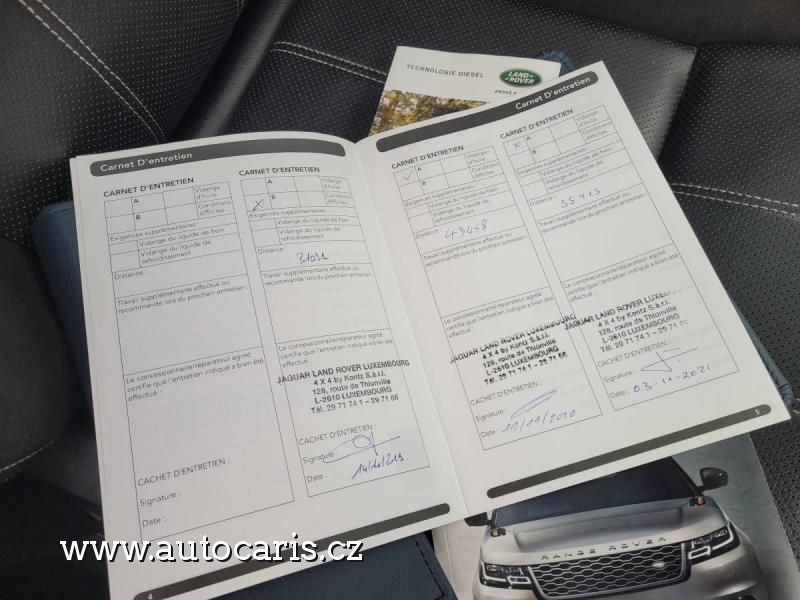 TECHNOLOGIE DIESEL
LAND ROVER
Carnet D'entretien
CARNET D'ENTRETIEN
A
Vidange d'huile
B
Conditions difficiles
Exigences supplémentaires :
Vidange du liquide de frein
Vidange du liquide de refroidissement
Distance :
Travail supplémentaire effectué ou
recommandé lors du prochain entretien :
Le concessionnaire/réparateur agréé
certifie que l'entretien indiqué a bien été
effectué :
CACHET D'ENTRETIEN :
Signature :
Date :
4
CARNET D'ENTRETIEN
A
Vidange d'huile
X B
Conditions difficiles
Exigences supplémentaires :
Vidange du liquide de frein
Vidange du liquide de refroidissement
Distance :
31091
Travail supplémentaire effectué ou
recommandé lors du prochain entretien :
Le concessionnaire/réparateur agréé
certifie que l'entretien indiqué a bien été
effectué :
JAGUAR LAND ROVER LUXEMBOURG
4 X 4 by Kontz S.à.r.l.
128, route de Thionville
L-2610 LUXEMBOURG
Tél. 29 71 74 1 - 29 71 68
CACHET D'ENTRETIEN :
Signature :
Date :
Carnet D'entretien
CARNET D'ENTRETIEN
A
Vidange d'huile
B
Conditions difficiles
Exigences supplémentaires :
Vidange du liquide de frein
Vidange du liquide de refroidissement
Distance :
43458
Travail supplémentaire effectué ou
recommandé lors du prochain entretien :
Le concessionnaire/réparateur agréé
certifie que l'entretien indiqué a bien été
effectué :
JAGUAR LAND ROVER LUXEMBOURG
4 X 4 by Kontz S.à.r.l.
128, route de Thionville
L-2610 LUXEMBOURG
Tél. 29 71 74 1 - 29 71 68
CACHET D'ENTRETIEN :
Signature :
Date : 11/11/2020
CARNET D'ENTRETIEN
x A
Vidange d'huile
B
Conditions difficiles
Exigences supplémentaires :
Vidange du liquide de frein
Vidange du liquide de refroidissement
Distance :
Travail supplémentaire effectué ou
recommandé lors du prochain entretien :
Le concessionnaire/réparateur agréé
certifie que l'entretien indiqué a bien été
effectué :
JAGUAR LAND ROVER
4 X 4 by Kontz S.à.r.l.
128, route de Thionville
L-2610 LUXEMBOURG
Tél. 29 71 74 1 - 29 71 68
CACHET D'ENTRETIEN :
Signature :
Date : 03-11-2021
5
RANGE ROVER
www.autocaris.cz